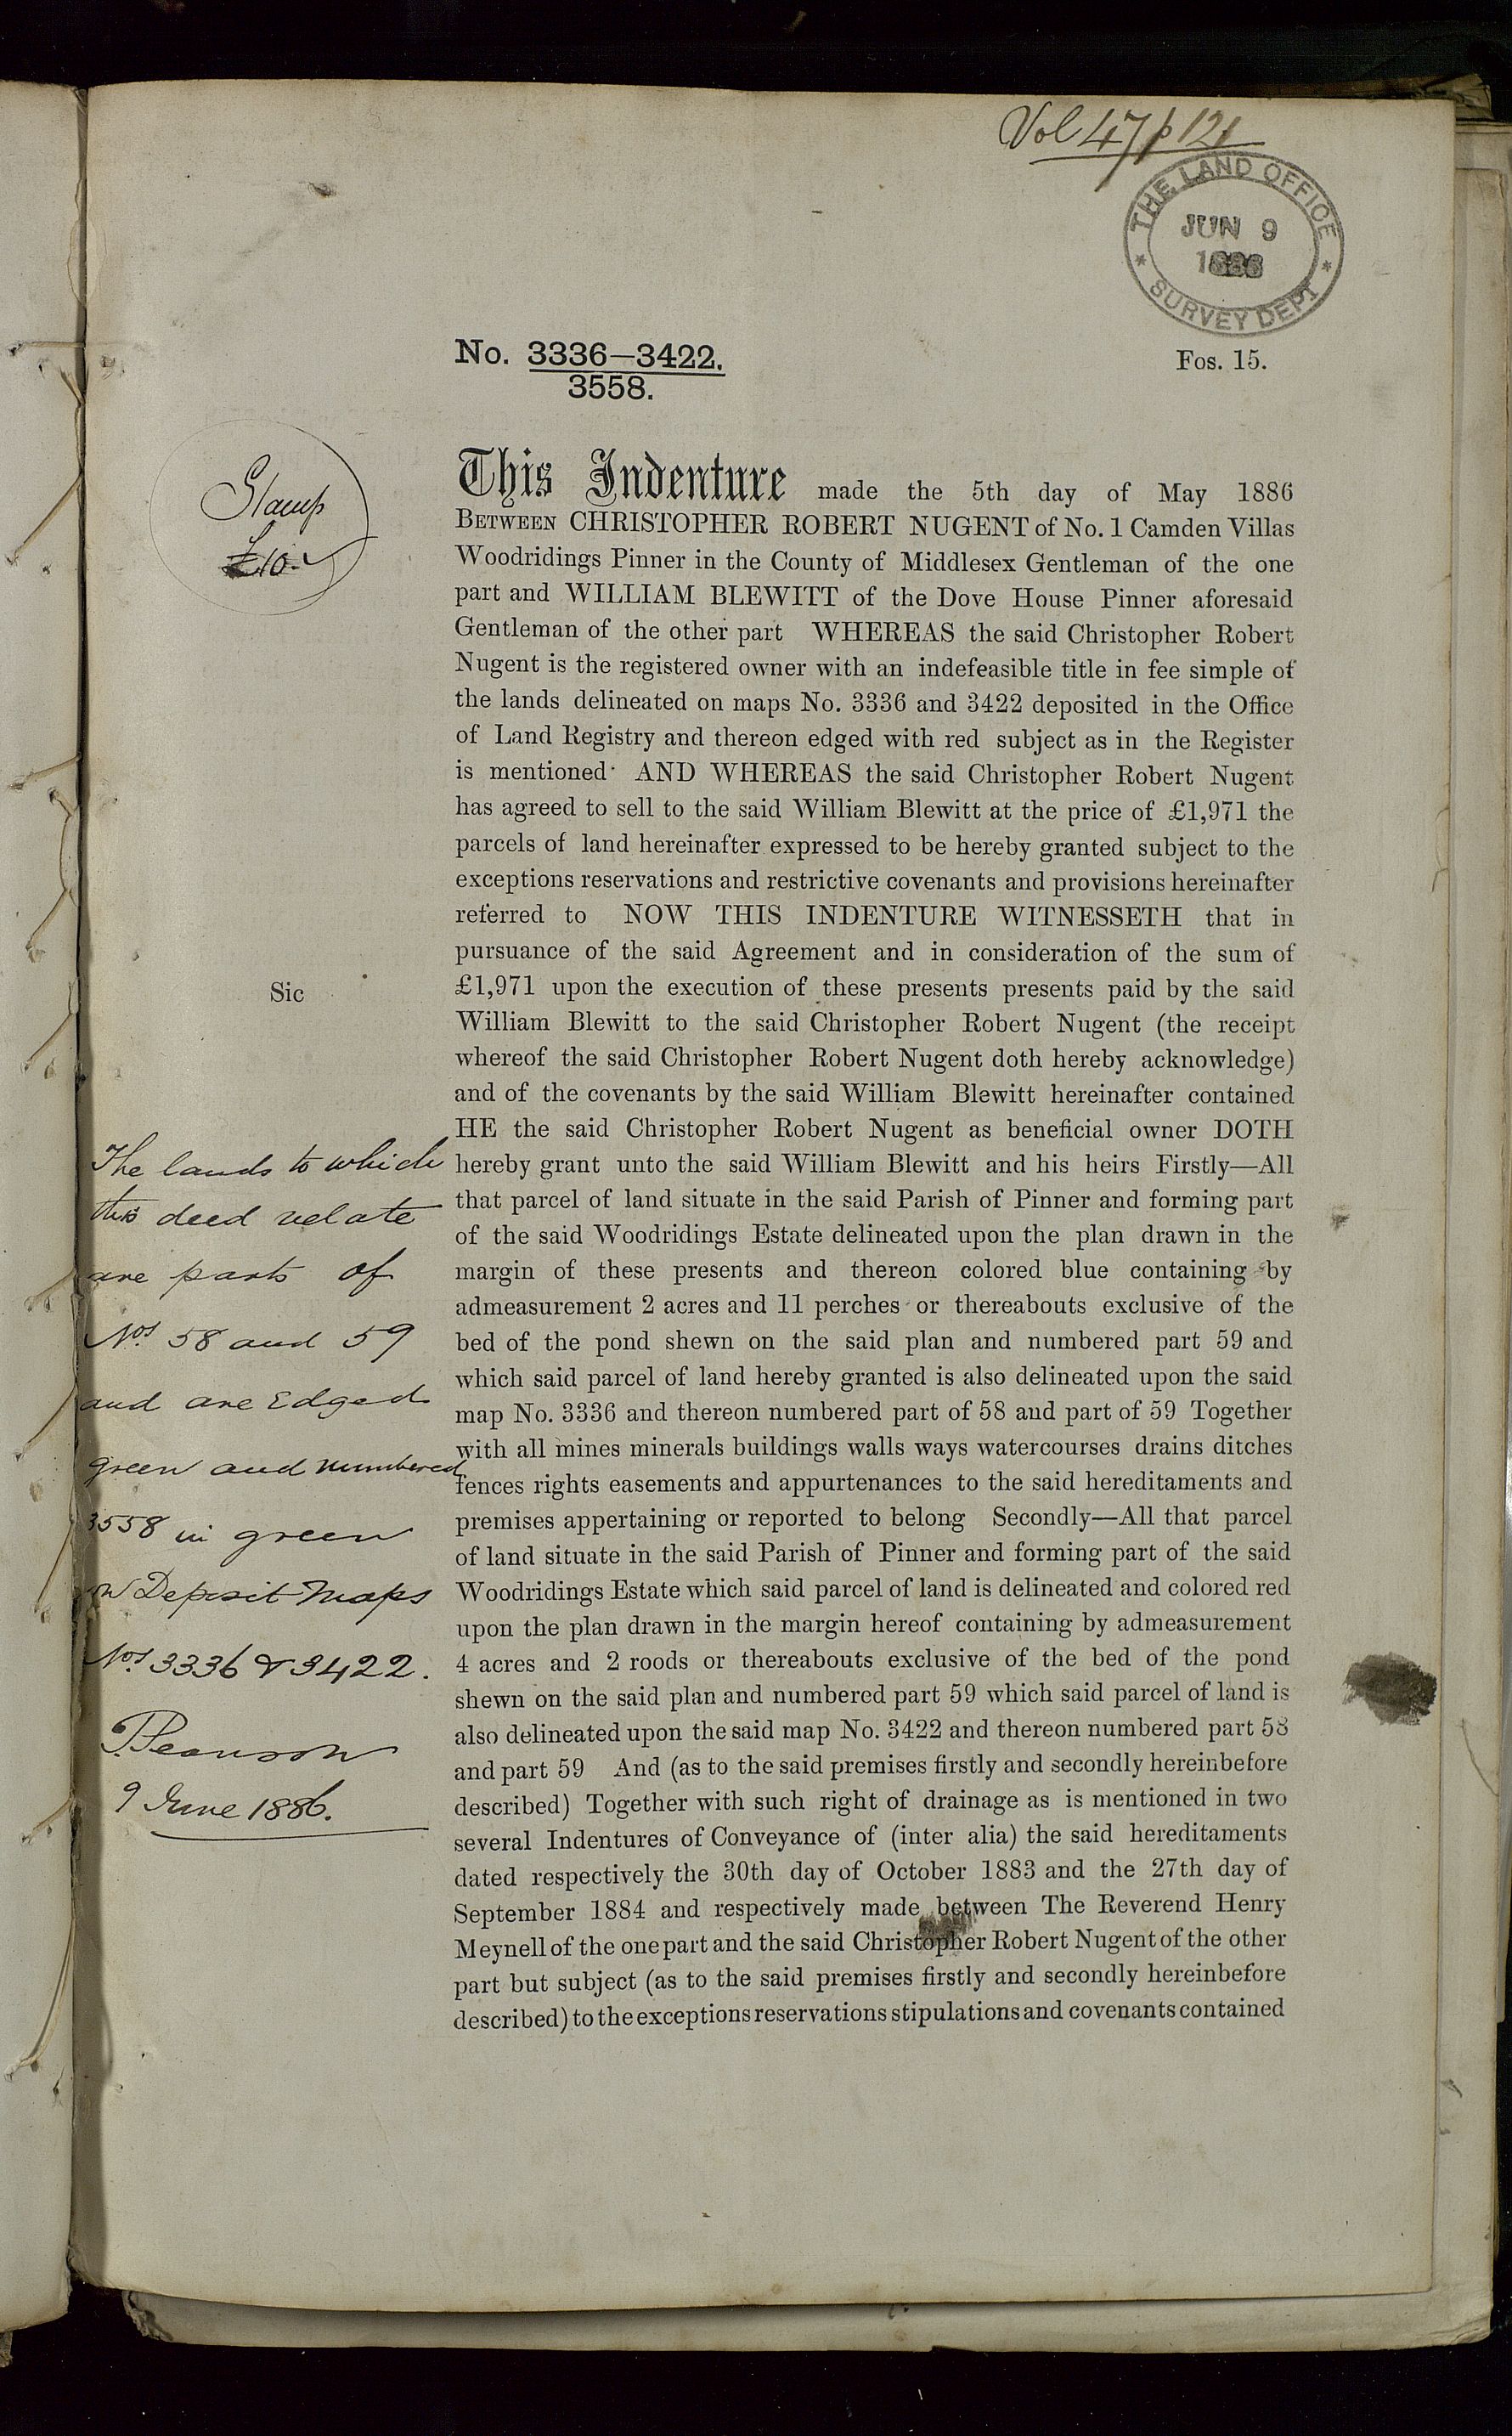 Vol 47 p 121
THE LAND OFFICE
JUN 9
1886
SURVEY DEPT
No. 3336—3422.
3558.
Fos. 15.
Stamp
£10
This Indenture made the 5th day of May 1886
BETWEEN CHRISTOPHER ROBERT NUGENT of No. 1 Camden Villas
Woodridings Pinner in the County of Middlesex Gentleman of the one
part and WILLIAM BLEWITT of the Dove House Pinner aforesaid
Gentleman of the other part WHEREAS the said Christopher Robert
Nugent is the registered owner with an indefeasible title in fee simple of
the lands delineated on maps No. 3336 and 3422 deposited in the Office
of Land Registry and thereon edged with red subject as in the Register
is mentioned AND WHEREAS the said Christopher Robert Nugent
has agreed to sell to the said William Blewitt at the price of £1,971 the
parcels of land hereinafter expressed to be hereby granted subject to the
exceptions reservations and restrictive covenants and provisions hereinafter
referred to NOW THIS INDENTURE WITNESSETH that in
pursuance of the said Agreement and in consideration of the sum of
Sic
£1,971 upon the execution of these presents presents paid by the said
William Blewitt to the said Christopher Robert Nugent (the receipt
whereof the said Christopher Robert Nugent doth hereby acknowledge)
and of the covenants by the said William Blewitt hereinafter contained
HE the said Christopher Robert Nugent as beneficial owner DOTH
hereby grant unto the said William Blewitt and his heirs Firstly—All
that parcel of land situate in the said Parish of Pinner and forming part
of the said Woodridings Estate delineated upon the plan drawn in the
margin of these presents and thereon colored blue containing by
admeasurement 2 acres and 11 perches or thereabouts exclusive of the
bed of the pond shewn on the said plan and numbered part 59 and
which said parcel of land hereby granted is also delineated upon the said
map No. 3336 and thereon numbered part of 58 and part of 59 Together
with all mines minerals buildings walls ways watercourses drains ditches
fences rights easements and appurtenances to the said hereditaments and
premises appertaining or reported to belong Secondly—All that parcel
of land situate in the said Parish of Pinner and forming part of the said
Woodridings Estate which said parcel of land is delineated and colored red
upon the plan drawn in the margin hereof containing by admeasurement
4 acres and 2 roods or thereabouts exclusive of the bed of the pond
shewn on the said plan and numbered part 59 which said parcel of land is
also delineated upon the said map No. 3422 and thereon numbered part 58
and part 59 And (as to the said premises firstly and secondly hereinbefore
described) Together with such right of drainage as is mentioned in two
several Indentures of Conveyance of (inter alia) the said hereditaments
dated respectively the 30th day of October 1883 and the 27th day of
September 1884 and respectively made between The Reverend Henry
Meynell of the one part and the said Christopher Robert Nugent of the other
part but subject (as to the said premises firstly and secondly hereinbefore
described) to the exceptions reservations stipulations and covenants contained
The lands to which
this deed relate
are parts of
Nos. 58 and 59
and are Edged
green and numbered
3558 in green
on Deposit Maps
Nos. 3336 & 3422.
9 June 1886.